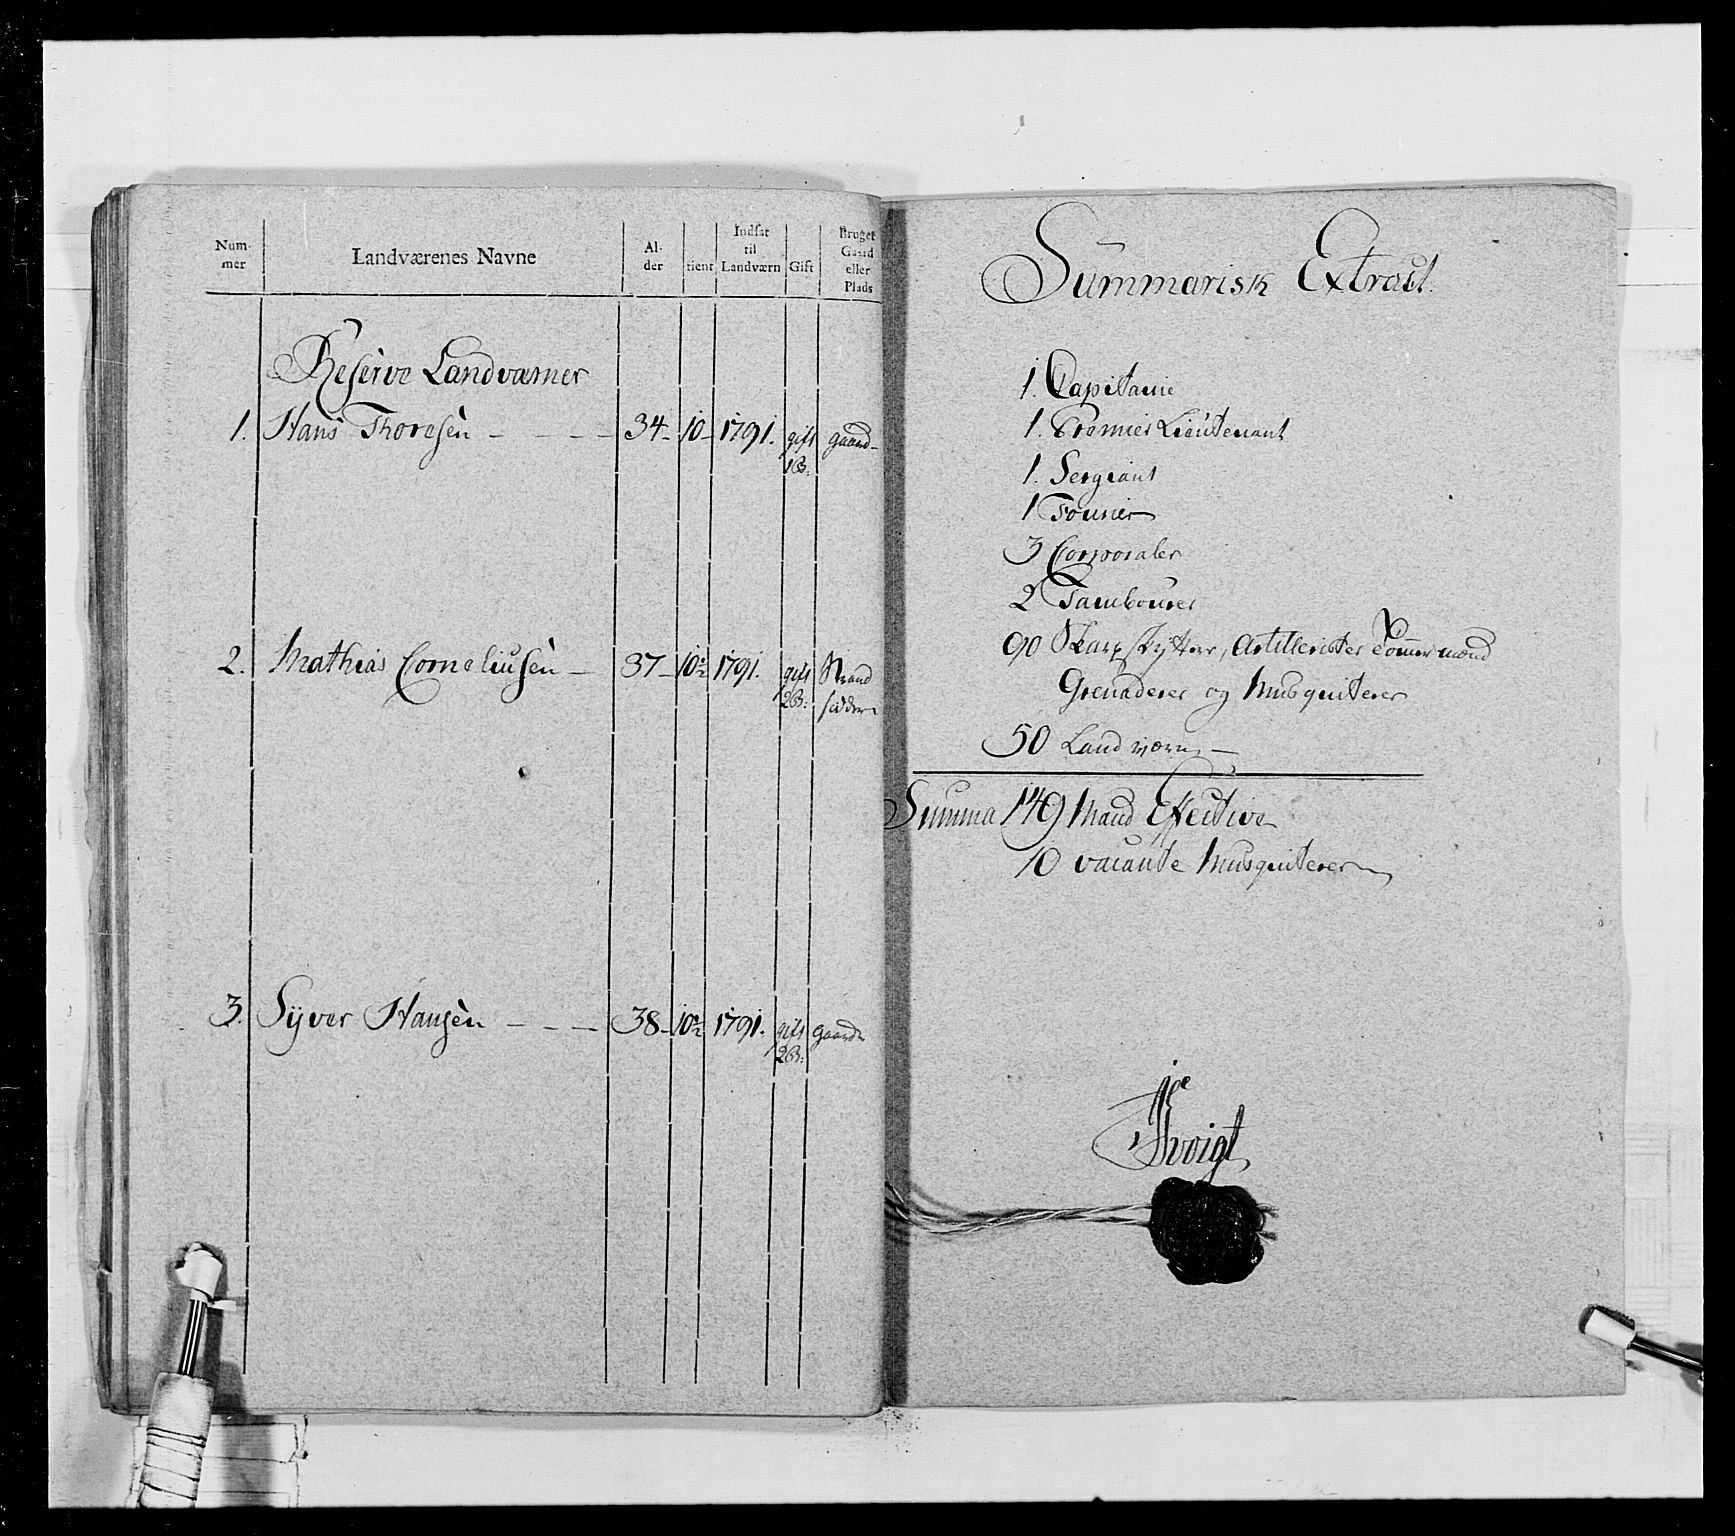 Num-
mer
Landværenes Navne
Al-
der
tient
Indsat
til
Landværn
Gift
Bruger
Gaard
eller
Plads
Reserve Landværner
1. Hans Thoresen - - - - 34- 10- 1791. gift gaard-
1 B:
2. Mathias Corneliusen - 37- 10½ 1791. gift Strand
2 B: sidder
3. Syver Hansen - - - 38- 10½ 1791. gift gaard
2 B:
Summarisk Extract.
1. Capitaine
1. Premier Lieutenant
1. Sergiant
1 Fourier
3 Corporaler
2 Tambourer
90 Skarpskyttere, Artillerister Tømmermænd
Grenaderer og Musquiterer
50 Landværn -
Summa 149 Mand Effective
10 vacante Musquiterer
Voigt